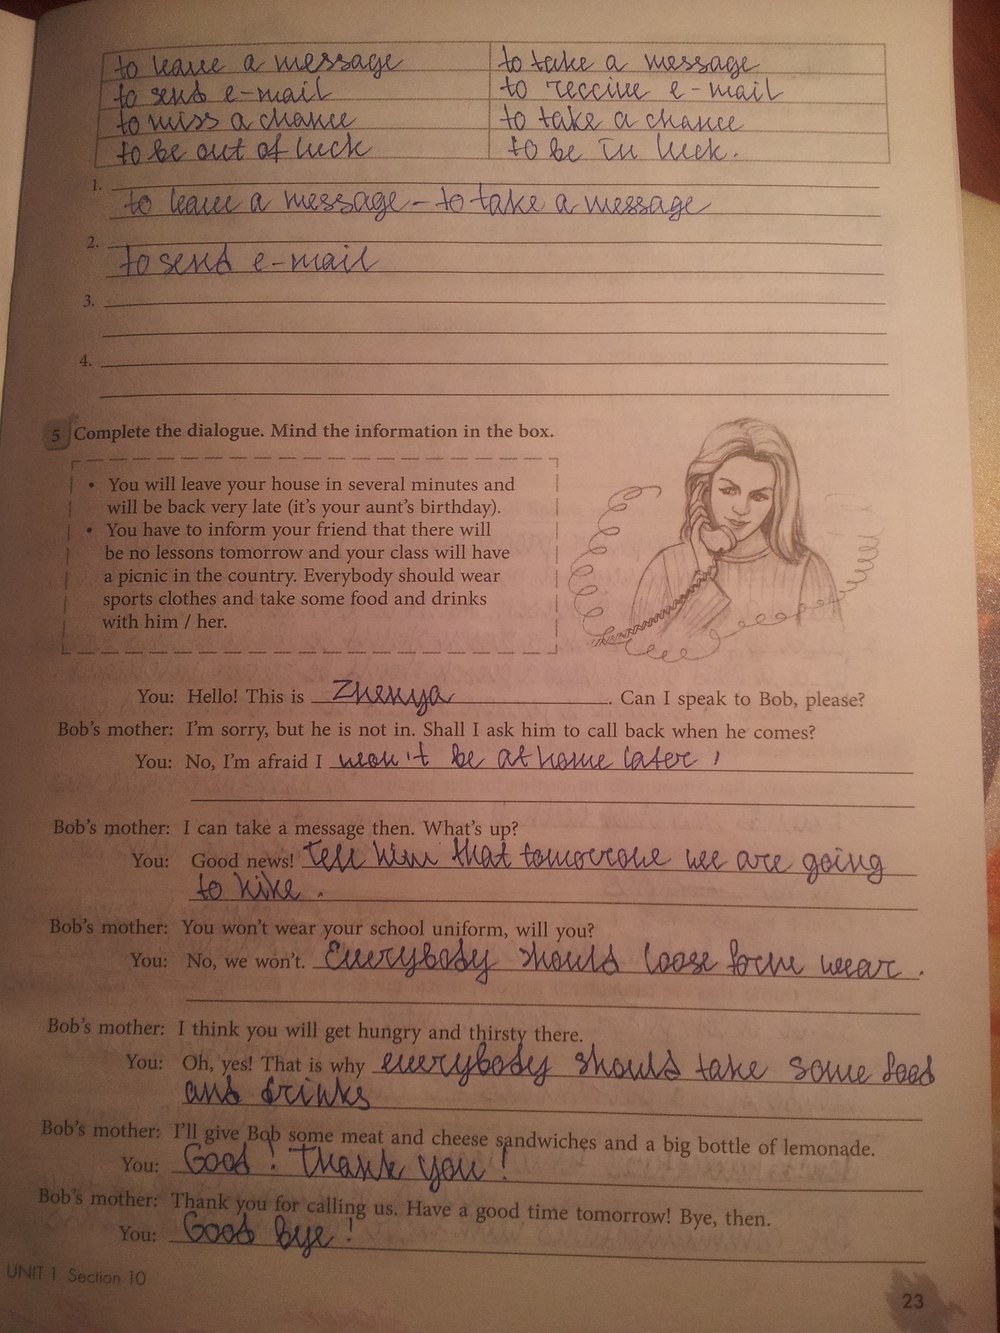 to leave a message to take a message
to send e-mail to receive e-mail
to miss a chance to take a chance
to be out of luck to be in luck.
1.
to leave a message - to take a message
2.
to send e-mail
3.
4.
5 Complete the dialogue. Mind the information in the box.
• You will leave your house in several minutes and
will be back very late (it's your aunt's birthday).
• You have to inform your friend that there will
be no lessons tomorrow and your class will have
a picnic in the country. Everybody should wear
sports clothes and take some food and drinks
with him / her.
You: Hello! This is Zhenya. Can I speak to Bob, please?
Bob's mother: I'm sorry, but he is not in. Shall I ask him to call back when he comes?
You: No, I'm afraid I won't be at home later,
Bob's mother: I can take a message then. What's up?
You: Good news! Tell him that tomorrow we are going
to hike.
Bob's mother: You won't wear your school uniform, will you?
You: No, we won't. Everybody should loose wear.
Bob's mother: I think you will get hungry and thirsty there.
You: Oh, yes! That is why everybody should take some food
and drinks
Bob's mother: I'll give Bob some meat and cheese sandwiches and a big bottle of lemonade.
You: Good! Thank you!
Bob's mother: Thank you for calling us. Have a good time tomorrow! Bye, then.
You: Good bye!
UNIT 1 Section 10
23